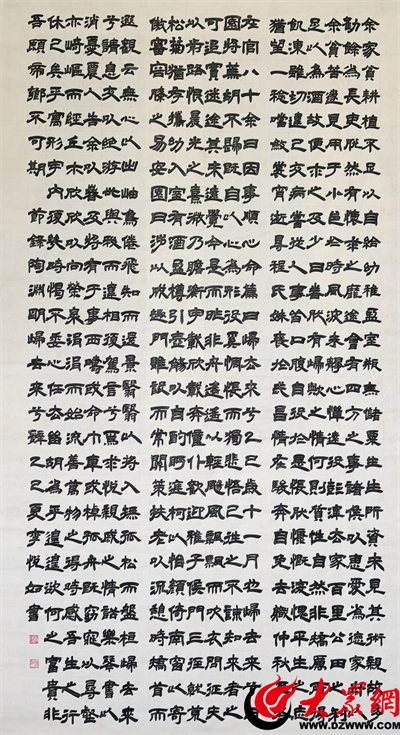 余家貧耕植不足以自給幼稚盈室瓶無儲粟生生所資未見其術親故多
勸余為長吏脫然有懷求之靡途會有四方之事諸侯以惠愛為德家叔
以余貧苦遂見用于小邑于時風波未靜心憚遠役彭澤去家百里公田之利
足以為酒故便求之及少日眷然有歸歟之情何則質性自然非矯厲所得
飢凍雖切違己交病嘗從人事皆口腹自役於是悵然慷慨深愧平生之志
猶望一稔當斂裳宵逝尋程氏妹喪於武昌情在駿奔自免去職仲秋至冬
在官八十余日因事順心命篇曰歸去來兮乙巳歲十一月也歸去來兮田
園將蕪胡不歸既自以心為形役奚惆悵而獨悲悟已往之不諫知來者之
可追實迷途其未遠覺今是而昨非舟遙遙以輕颺風飄飄而吹衣問征夫
以前路恨晨光之熹微乃瞻衡宇載欣載奔僮僕歡迎稚子候門三徑就荒
松菊猶存攜幼入室有酒盈樽引壺觴以自酌眄庭柯以怡顏倚南窗以寄
傲審容膝之易安園日涉以成趣門雖設而常關策扶老以流憩時矯首而
遐觀雲無心以出岫鳥倦飛而知還景翳翳以將入撫孤松而盤桓歸去來
兮請息交以絕游世與我而相遺復駕言兮焉求悅親戚之情話樂琴書以
消憂農人告余以春及將有事于西疇或命巾車或棹孤舟既窈窕以尋壑
亦崎嶇而經丘木欣欣以向榮泉涓涓而始流善萬物之得時感吾生之行
休已矣乎寓形宇內復幾時曷不委心任去留胡為乎遑遑欲何之富貴非
吾願帝鄉不可期 節錄陶淵明歸去來兮辭 夏李悅如書
大众网
WWW.DZWWW.COM